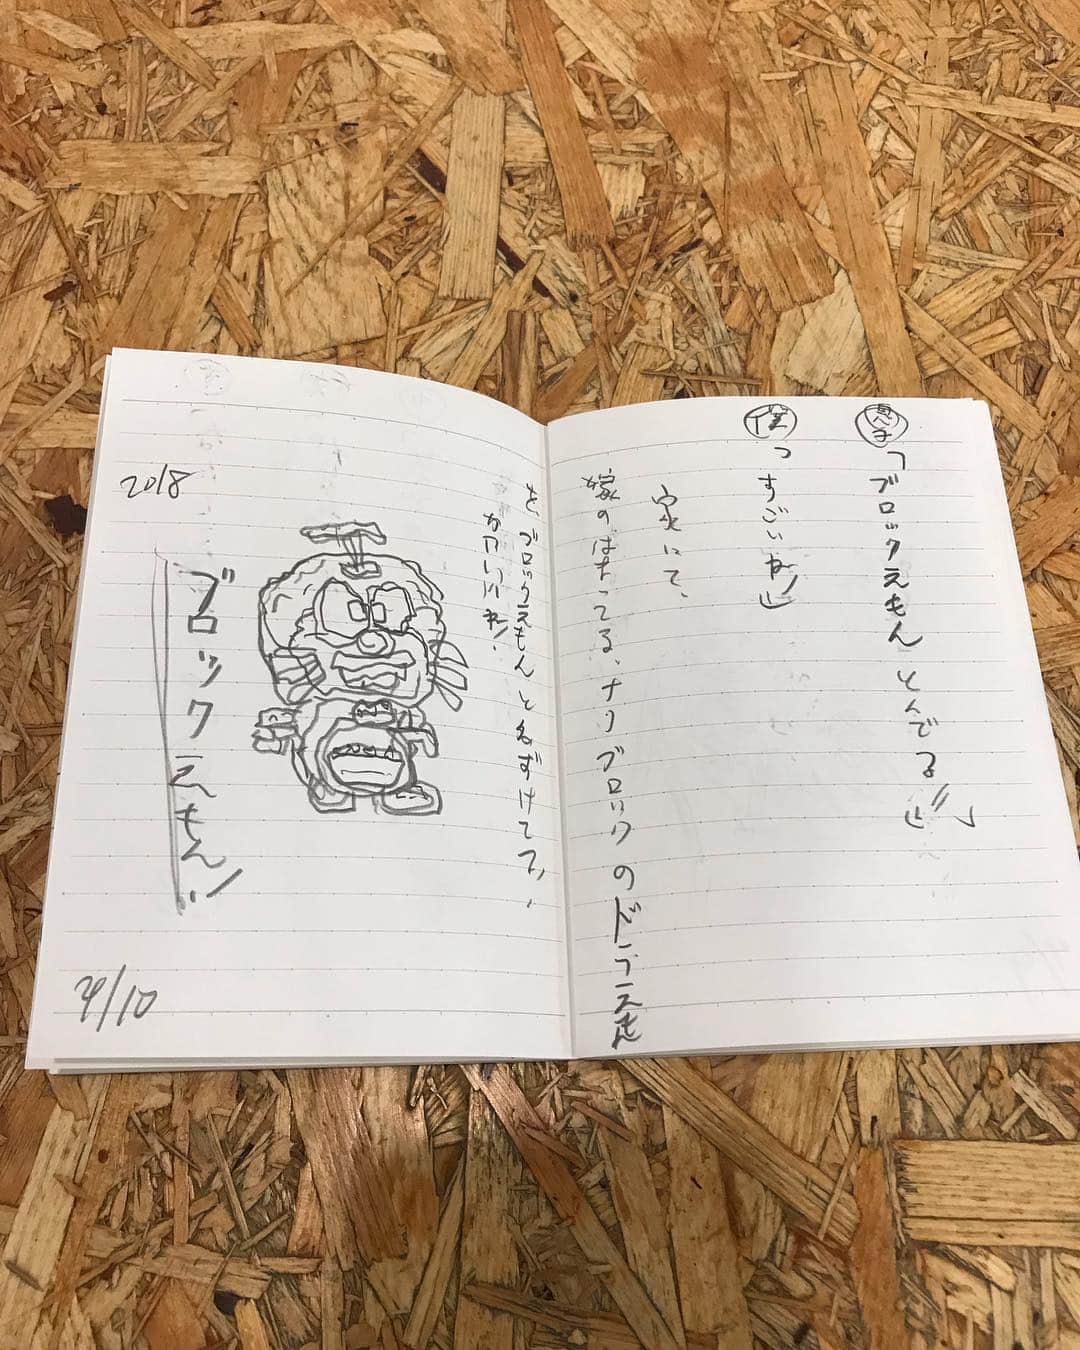 「ブロックえもん とんでる!!」
僕「すごいねー!」
家にて、
嫁のはまってる、ナノブロックのドラえもん
を ブロックえもん と名ずけてて、、
かわいいね!
ブロックえもん!!
2018
4/10